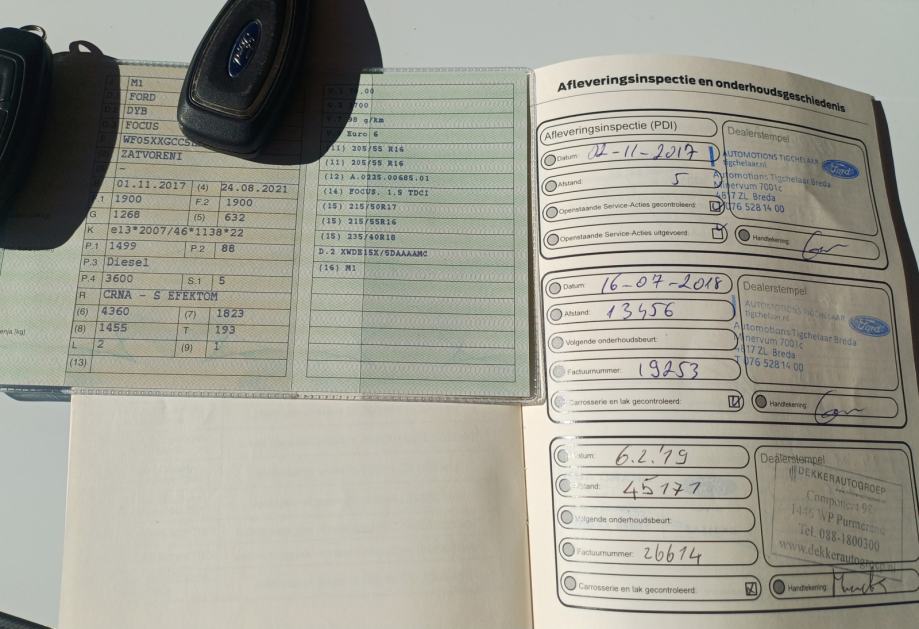 M1
FORD
DYB
FOCUS
WF05XXGCCS
ZATVORENI
-
01.11.2017 (4) 24.08.2021
.1 1900 F.2 1900
G 1268 (5) 632
K e13*2007/46*1138*22
P.1 1499 P.2 88
P.3 Diesel
P.4 3600 S.1 5
R CRNA - S EFEKTOM
(6) 4360 (7) 1823
(8) 1455 T 193
L 2 (9) 1
(13)
700
98 g/km
Euro 6
(11) 205/55 R16
(11) 205/55 R16
(12) A.0235.00685.01
(14) FOCUS, 1.5 TDCI
(15) 215/50R17
(15) 215/55R16
(15) 235/40R18
D.2 XWDE15X/5DAAAAMC
(16) M1
Ford
Afleveringsinspectie en onderhoudsgeschiedenis
Afleveringsinspectie (PDI)
Datum: 02-11-2017
Afstand: 5
Openstaande Service-Acties gecontroleerd:
Openstaande Service-Acties uitgevoerd:
Dealerstempel
AUTOMOTIONS TIGCHELAAR
tigchelaar.nl
Automotions Tigchelaar Breda
Minervum 7001c
4817 ZL Breda
076 528 14 00
Ford
Handtekening:
Datum: 16-07-2018
Afstand: 13456
Volgende onderhoudsbeurt:
Factuurnummer: 19253
Carrosserie en lak gecontroleerd:
Dealerstempel
AUTOMOTIONS TIGCHELAAR
tigchelaar.nl
Automotions Tigchelaar Breda
Minervum 7001c
4817 ZL Breda
T 076 528 14 00
Ford
Handtekening:
Datum: 6.2.'19
Afstand: 45171
Volgende onderhoudsbeurt:
Factuurnummer: 26614
Carrosserie en lak gecontroleerd:
Dealerstempel
DEKKERAUTOGROEP
WP Purmerend
Tel. 088-1800300
www.dekkerautogroep.nl
Handtekening: